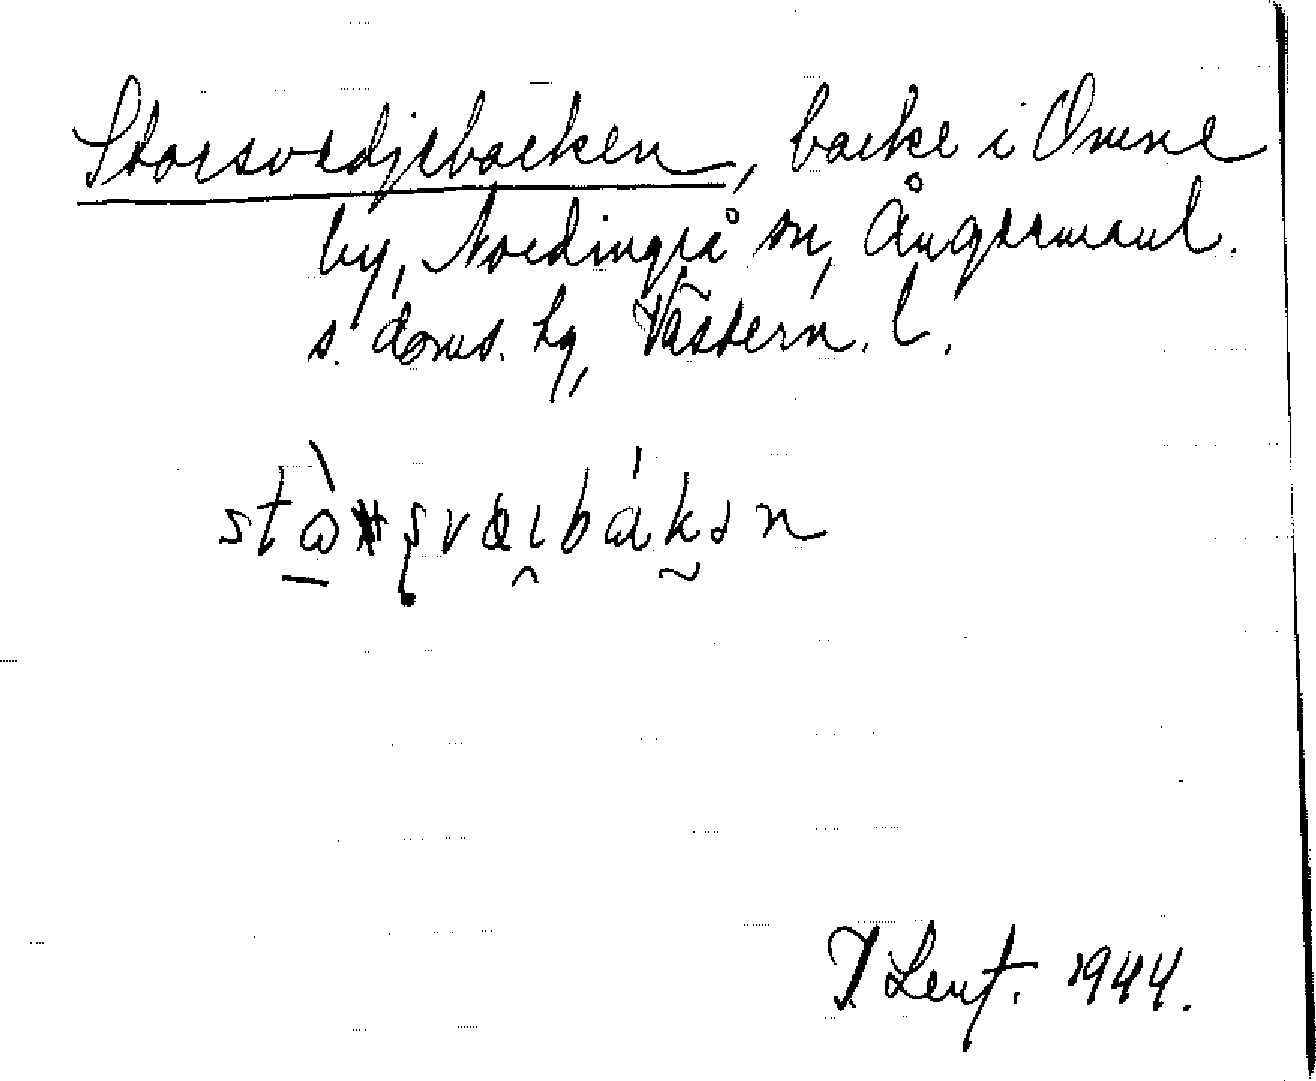 Storsvedjebacken, backe i Omne
by, Nordingrå sn, Ångermanl.
s. doms. hg, Västern. l.
J. Lenf. 1944.